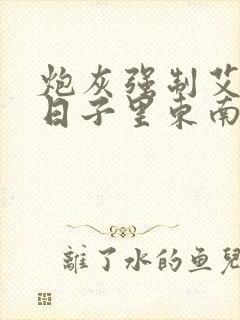 炮灰强制艾
日子里东南
離了水的鱼兒